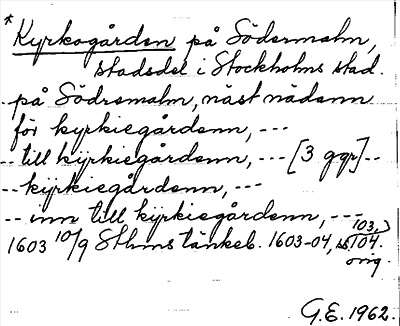 * Kyrkogården på Södermalm,
stadsdel i Stockholms stad.
på Södremalm, näst nädenn
för kyrkiegårdenn, ---
-- till kÿrkiegårdenn, --- [3 ggr] --
-- kÿrkiegårdenn, ---
-- inn till kÿrkiegårdenn, ---
1603 10/9 Sthms tänkeb. 1603-04, s. 103, 104.
orig.
G.E. 1962.